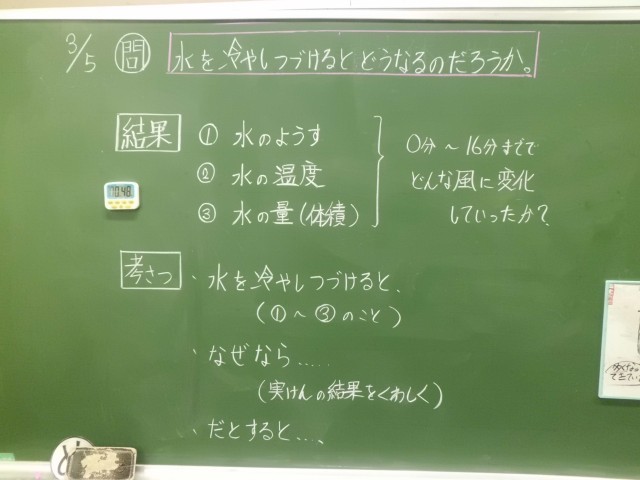 3/5 問 水を冷やしつづけるとどうなるのだろうか。
結果
① 水のようす
② 水の温度
③ 水の量(体積)
0分～16分までで
どんな風に変化
していったか?
70.48
考さつ
・水を冷やしつづけると、
(①～③のこと)
・なぜなら.....
(実けんの結果をくわしく)
・だとすると...、
ど